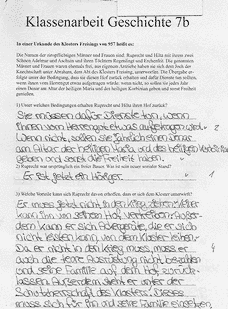 Klassenarbeit Geschichte 7b
In einer Urkunde des Klosters Freisings von 957 heißt es:
Die Namen der Männer und Frauen sind: Ruprecht und Hilta mit ihren zwei
Söhnen Adelmar und und ihren Töchtern Regenlinge und Die genannten
Männer und Frauen waren ehemals frei, aus eigenem Antriebe haben sie sich dem Joch der
Knechtschaft unter Abraham, dem Abt des Klosters Freising, unterworfen. Die Übergabe
unter der Bedingung, dass sie diesen Hof zurück erhalten und dafür Dienste tun sollten,
wenn ihnen vom Herrenhof etwas aufgetragen wird. Wenn nicht, sollten sie jährlich einen
Denar am Altar der heiligen Maria und des heiligen Korbinian geben und sonst Freiheit
haben.
1) Unter welchen Bedingungen erhalten Ruprecht und Hilta ihren Hof zurück?
Sie müssen dafür Dienste tun, wenn
ihnen vom Herrenhof etwas aufgetragen wird.
Wenn nicht, sollen sie jährlich einen Denar
am Altar der heiligen Maria und des heiligen
geben und sonst die Freiheit haben.
2) Ruprecht war ursprünglich ein freier Bauer. Was ist sein neuer sozialer Stand?
Er ist jetzt ein Höriger.
3) Welche Vorteile kann sich Ruprecht davon erhoffen, dass er sich dem Kloster unterwirft?
Er muss jetzt nicht in den Krieg ziehen.
kann ihn von seinem Hof vertreiben. Außer-
dem kann er sich Ackergeräte, die er sich
nicht leisten kann, vom Kloster leihen.
Da er nicht in den Krieg muss, muss er
auch die teure Ausrüstung nicht bezahlen
und seine Familie auf dem Hof zurück-
lassen. Außerdem steht er unter der
Schutzherrschaft des Klosters. Dieses
muss sich für ihn und seine Familie einsetzen.